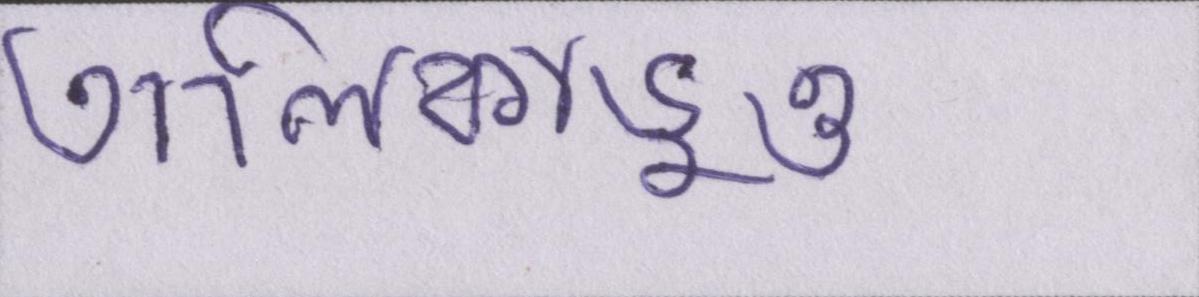 তালিকাভুক্ত